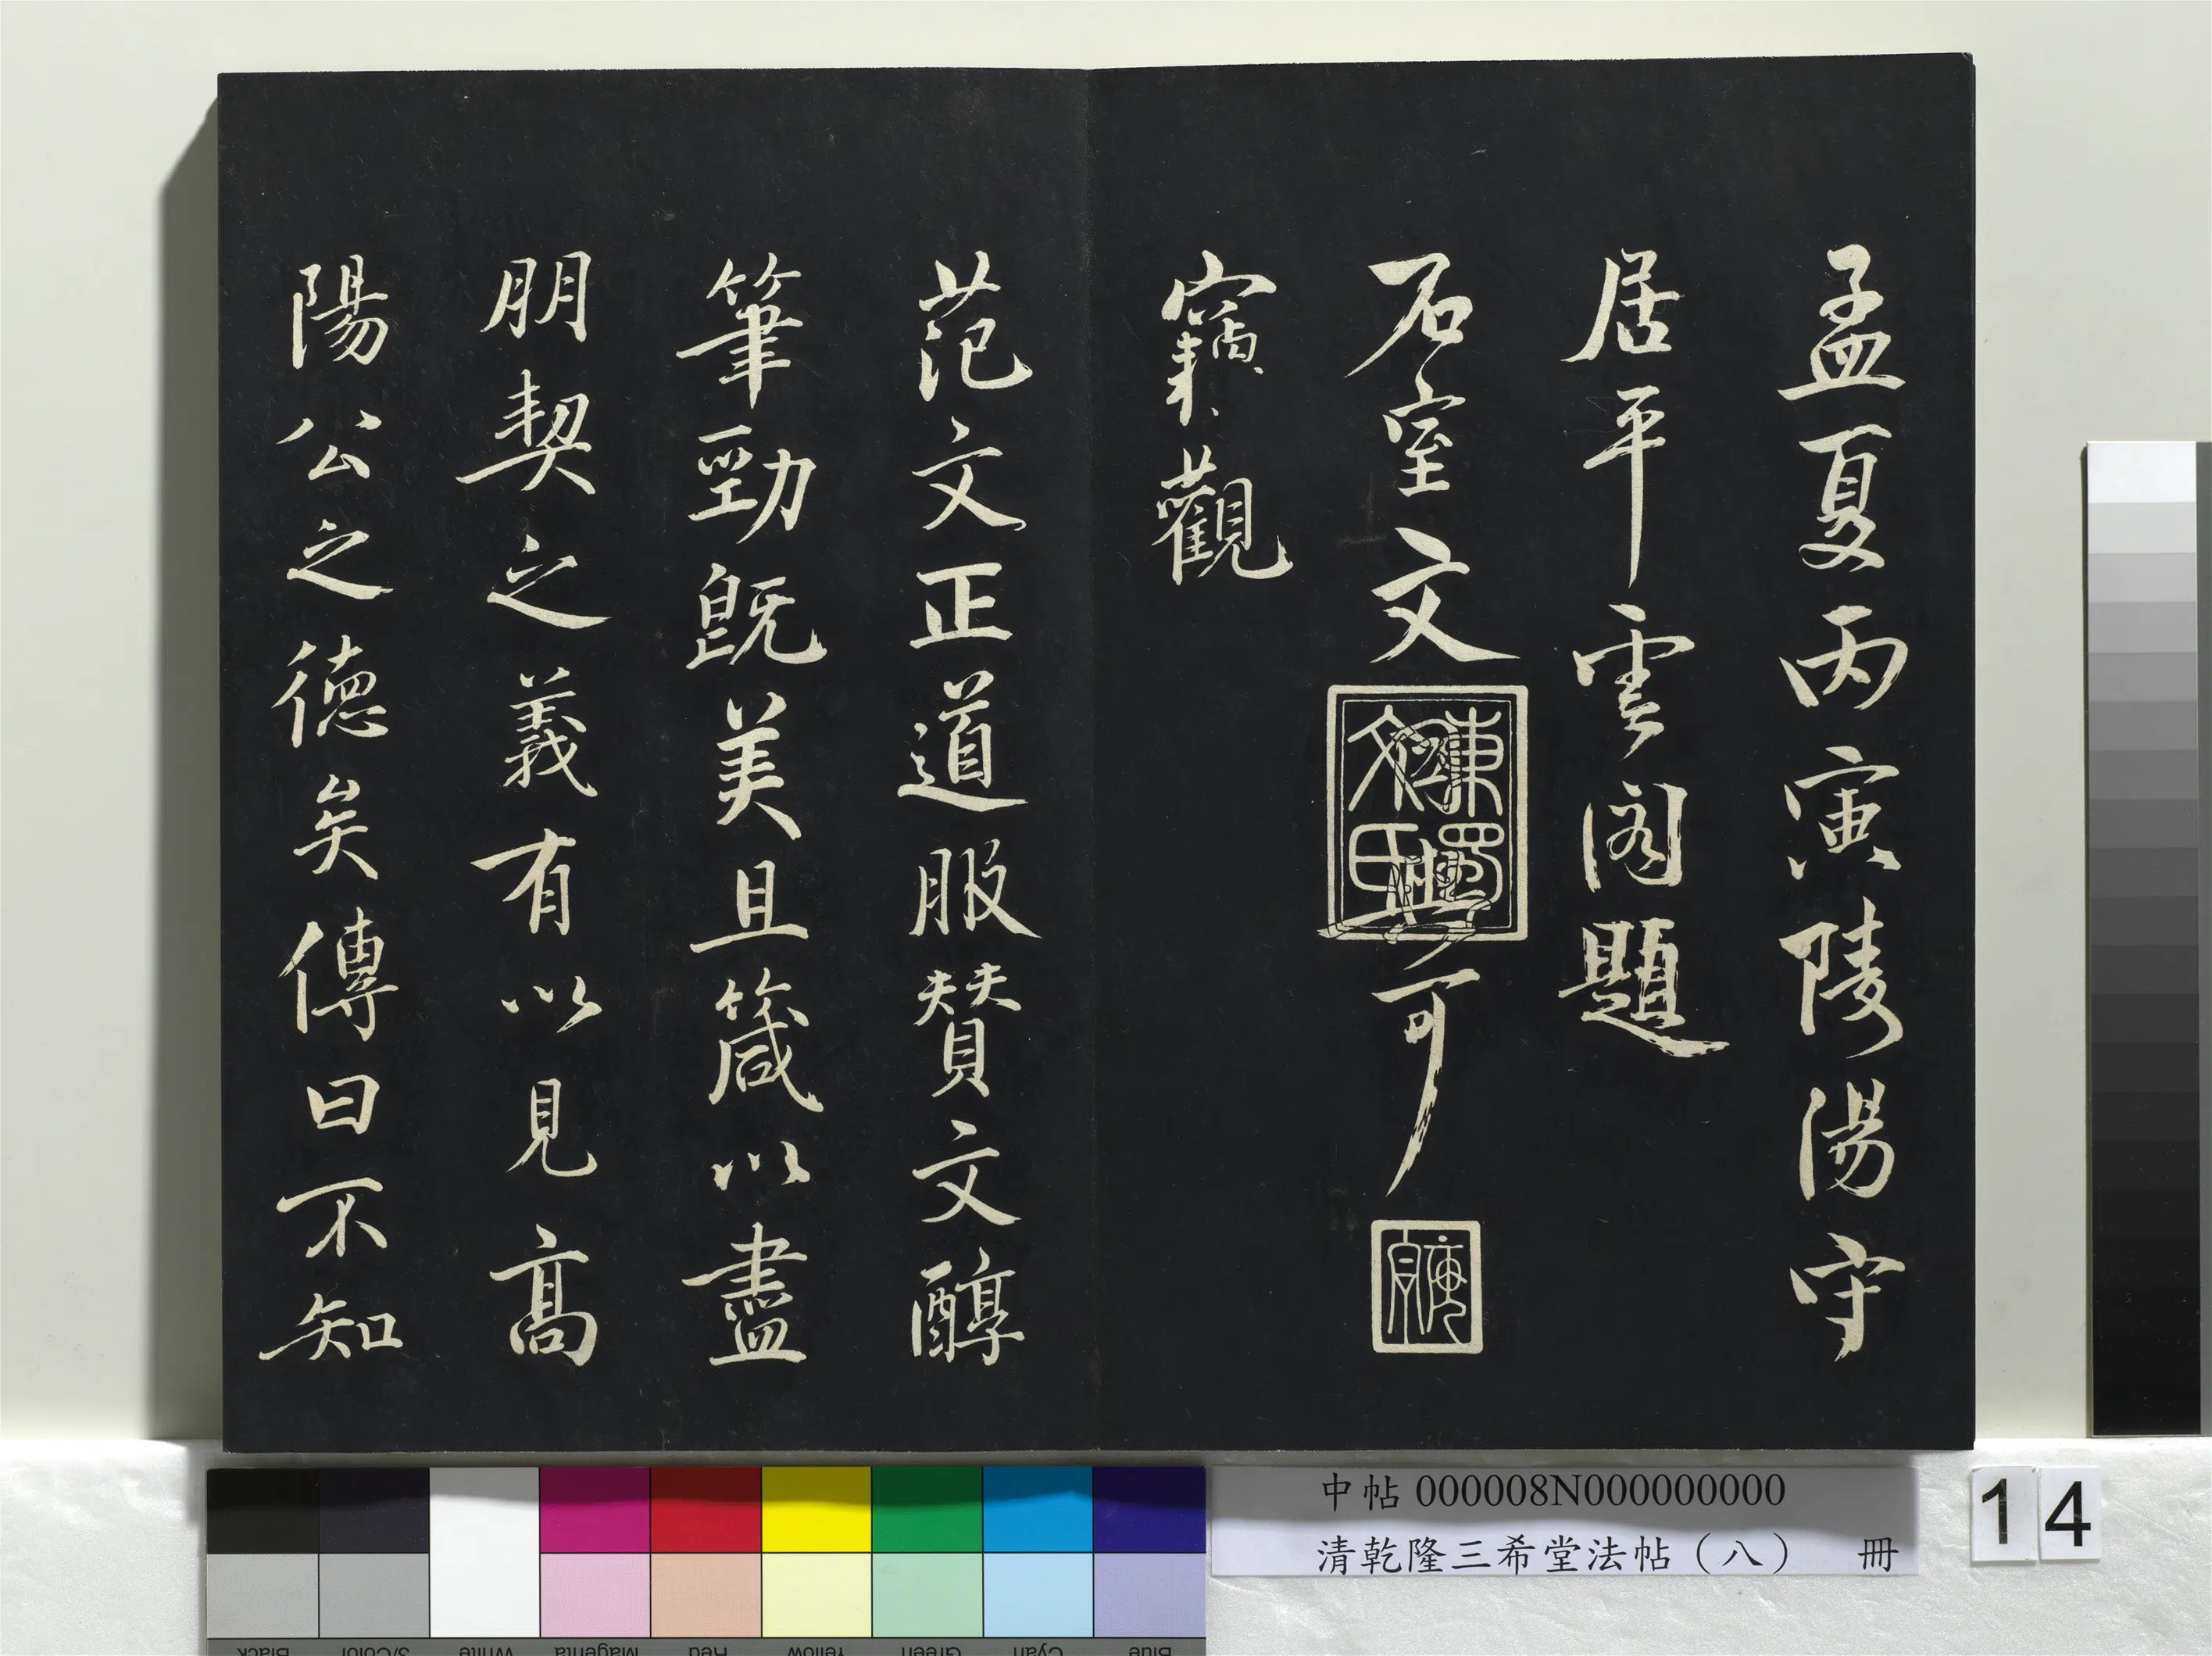 孟夏丙寅陵陽守
居平雲閣題
石室文與可
東蜀文氏
寶觀
范文正道服贊文醇
筆勁既美且箴以盡
朋契之義有以見高
陽公之德矣傳曰不知
中帖 000008N000000000
清乾隆三希堂法帖（八） 冊
14
Blue Cyan Green Yellow Red Magenta White 3/Color Black